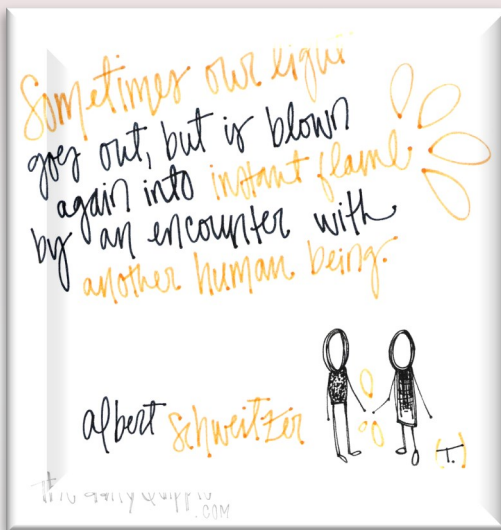 Sometimes our light
goes out, but is blown
again into instant flame
by an encounter with
another human being.
albert schweitzer
(T.)
.COM